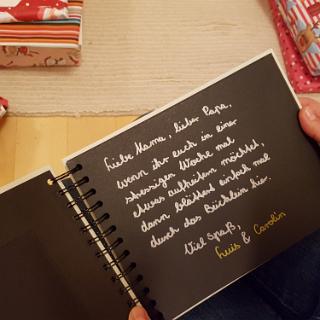 Liebe Mama, lieber Papa,
wenn ihr euch in einer
stressigen Woche mal
etwas aufheitern möchtet,
dann blättert einfach mal
durch das Büchlein hier.
Viel Spaß,
Luis & Carolin